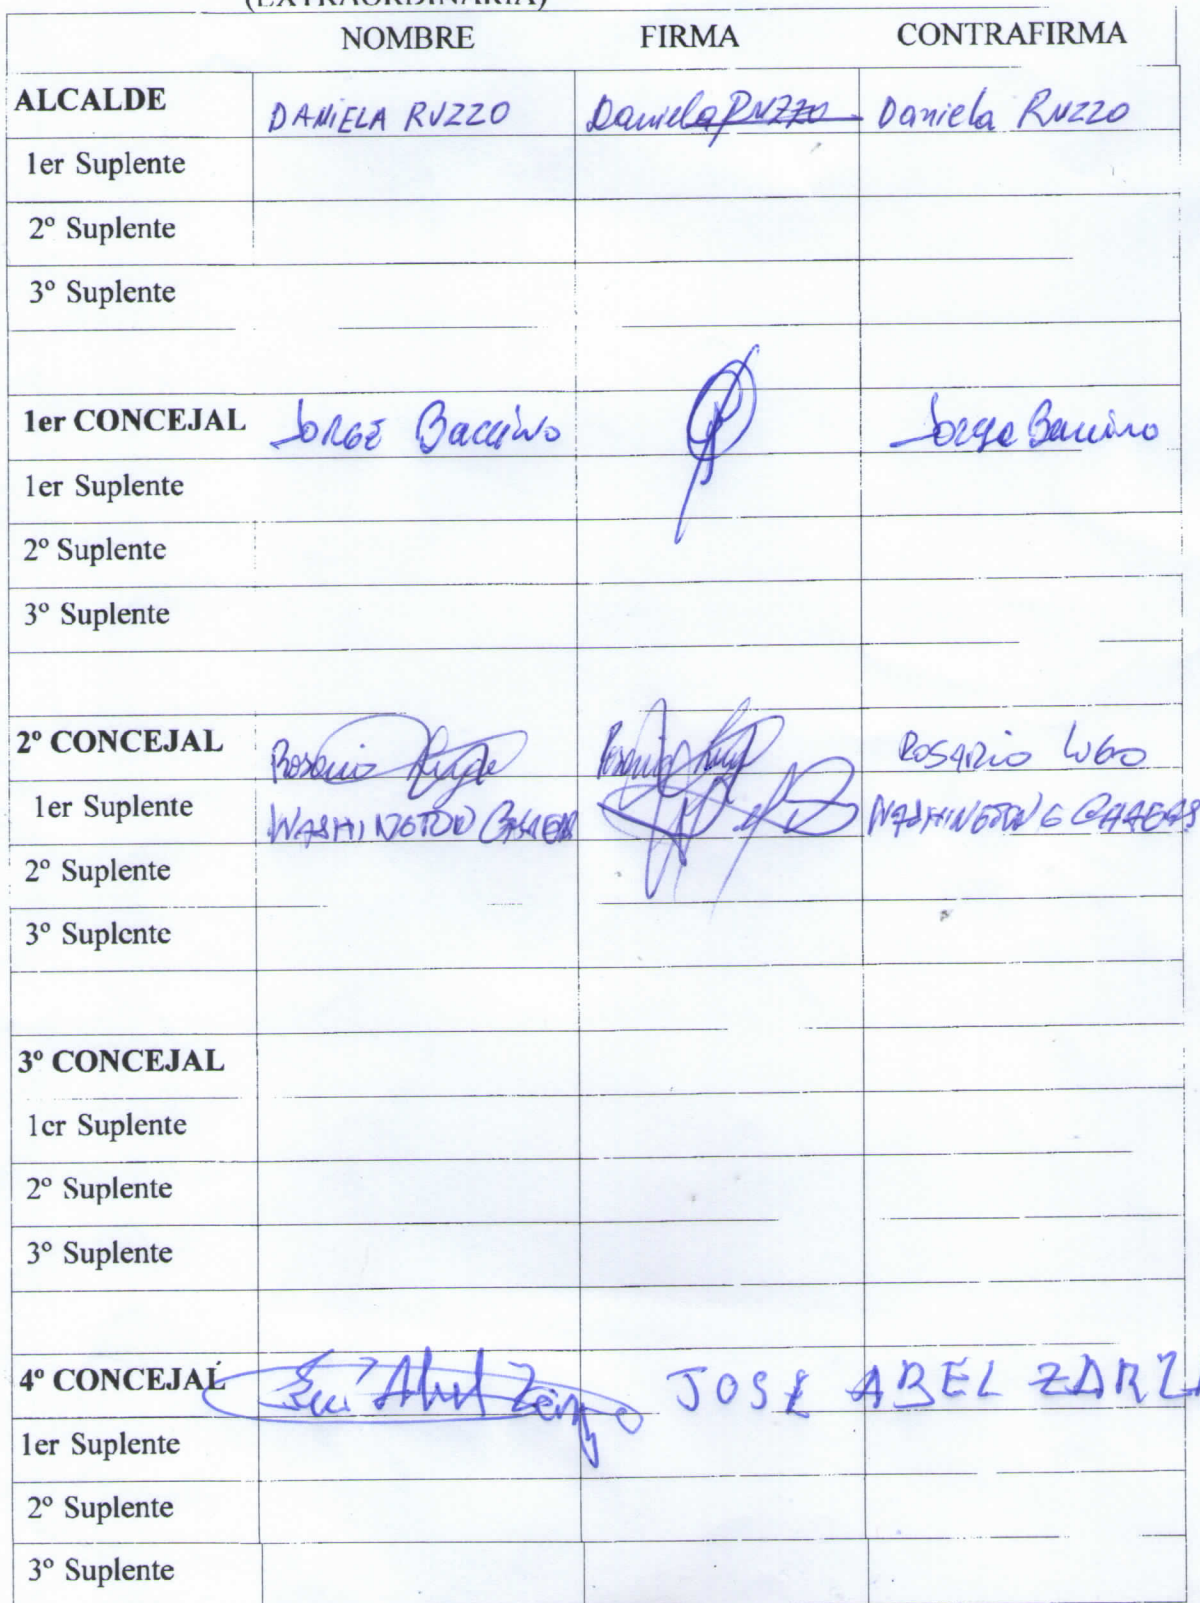 (EXTRAORDINARIA)
NOMBRE FIRMA CONTRAFIRMA
ALCALDE DANIELA RUZZO Daniela Ruzzo Daniela Ruzzo
1er Suplente
2º Suplente
3º Suplente
1er CONCEJAL JORGE Baccino Jorge Baccino
1er Suplente
2º Suplente
3º Suplente
2º CONCEJAL Rosario Lugo Rosario Lugo ROSARIO LUGO
1er Suplente WASHINGTON WASHINGTON G
2º Suplente
3º Suplente
3º CONCEJAL
1er Suplente
2º Suplente
3º Suplente
4º CONCEJAL José Abel JOSE ABEL ZARZA
1er Suplente
2º Suplente
3º Suplente